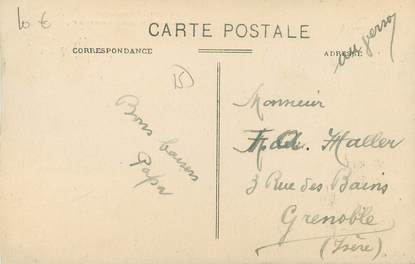 10 €
CARTE POSTALE
CORRESPONDANCE
ADRESSE
15
Bons baisers
Papa
Monsieur
Haller
3 Rue des Bains
Grenoble
(Isère)